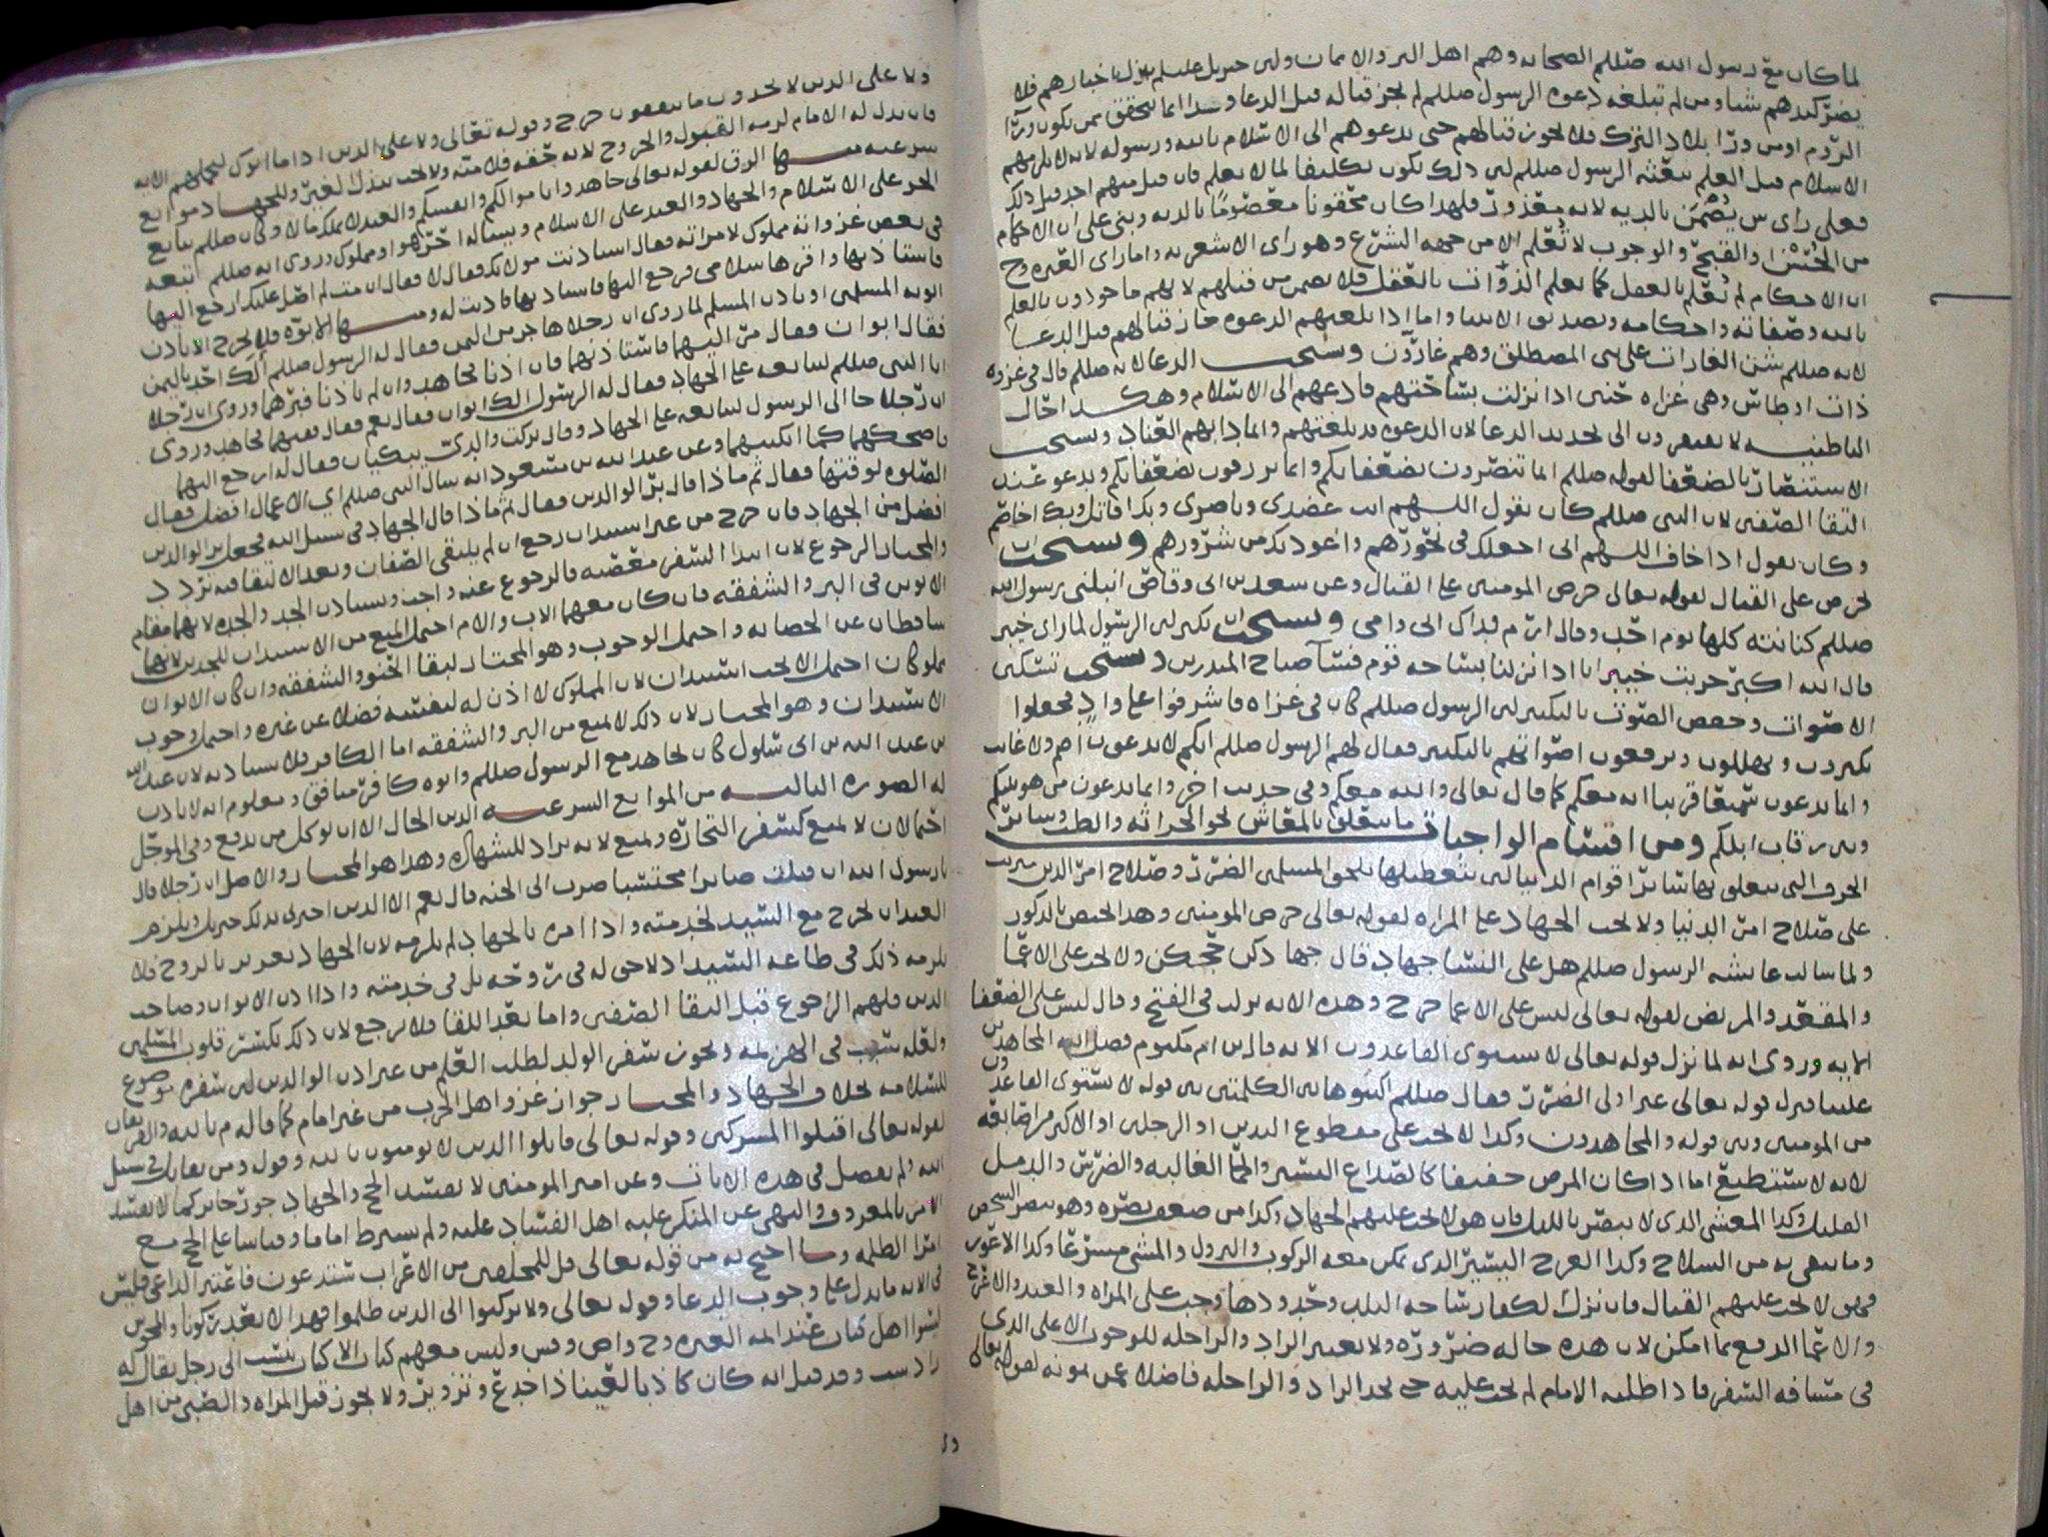 لما كان مع رسول الله صللم الصحابه وهم اهل البر والايمان ولان جبريل عليلم ينزل باخبارهم فلا
يضر كيدهم شيا ومن لم تبلغه دعوه الرسول صللم لم يجز قتاله قبل الدعا وهذا انما يتحقق ممن يكون ورا
الروم او من ورا بلاد الترك فلا يجوز قتالهم حتى يدعوهم الى الاسلام بالله ورسوله لانه لا يلزمهم
الاسلام قبل العلم ببعثه الرسول صللم لان ذلك يكون تكليفا لما لا يعلم فان قتل منهم احد قبل ذلك
فعلى راي من يضمن بالديه لانه معذور فلهذا كان محقونا معصوما بالديه وبنى على ان الاحكام
من الحسن والقبح والوجوب لا تعلم الا من جهه الشرع وهو راى الاشعريه واما راى العتره وح
ان الاحكام لم تعلم بالعقل كما تعلم الذوات بالعقل فلا يضمن من قتلهم لانهم ماخوذون بالعلم
بالله وصفاته واحكامه وتصديق الانبيا واما اذا بلغتهم الدعوه جاز قتالهم قبل الدعا
لانه صللم شن الغارات على بنى المصطلق وهم غارون ويستحب الدعا لانه صللم قال فى غزوه
ذات اوطاس وهى غزاه حنين اذا نزلت بساحتهم فادعهم الى الاسلام وهكذا حال
الباطنيه لا يفتقرون الى تجديد الدعا لان الدعوه قد بلغتهم وانما دابهم العناد ويستحب
الاستنصار بالضعفا لقوله صللم انما تنصرون بضعفايكم وانما ترزقون بضعفايكم ويدعو عند
التقا الصفين لان النبى صللم كان يقول اللهم انت عضدى وناصرى وبك اقاتل وبك اخاصم
وكان يقول اذا خاف اللهم انى اجعلك فى نحورهم واعوذ بك من شرورهم ويستحب ان
يحرض على القتال لقوله تعالى حرض المومنين على القتال وعن سعد بن ابى وقاص انبلنى رسول الله
صللم كنانته كلها يوم احد وقال ارم فداك ابى وامى ويستحب ان يكبر لان الرسول لما راى خيبر
قال الله اكبر خربت خيبر انا اذا نزلنا بساحه قوم فسآ صباح المنذرين ويستحب تسكين
الاصوات وخفض الصوت بالتكبير لان الرسول صللم كان فى غزاه فاشرفوا على واد فجعلوا
يكبرون ويهللون ويرفعون اصواتهم بالتكبير فقال لهم الرسول صللم انكم لا تدعون اصم ولا غايب
وانما تدعون سميعا قريبا انه معكم كما قال تعالى والله معكم وفى حديث اخر وانما تدعون من هو بينكم
وبين رقاب ابلكم ومن اقسام الواجبات ما يتعلق بالمعاش نحو الحراثه والطب وساير
الحرف التى يتعلق بها ساير اقوام الدنيا لان بتعطيلها يلحق المسلمين الضرر وصلاح امر الدين مترتب
على صلاح امر الدنيا ولا يجب الجهاد على المراه لقوله تعالى حرض المومنين وهذا يختص بالذكور
ولما سالت عايشه الرسول صللم هل على النسا جهاد قال جهادكن حجكن ولا يجب على الاعما
والمقعد والمريض لقوله تعالى ليس على الاعما حرج وهذه الايه نزلت فى الفتح وقال ليس على الضعفا
الايه وروى انه لما نزل قوله تعالى لا يستوى القاعدون الايه قال بن ام مكتوم فضل الله المجاهدين
علينا فنزل قوله تعالى غير اولى الضرر فقال صللم اكتبوها بين الكلمتين بين قوله لا يستوى القاعدون
من المومنين وبين قوله والمجاهدون وكذا لا يجب على مقطوع اليدين او الرجلين او الاكبر من اصابعه
لانه لا يستطيع اما اذا كان المرض خفيفا كالصداع اليسير والحما الغالبه والضرس والدمل
القليل وكذا المعشى الذى لا يبصر بالليل فان هولا يجب عليهم الجهاد وكذا من ضعف بصره وهو يبصر الشخص
وما يتقى به من السلاح وكذا العرج اليسير الذى يمكن معه الركوب والنزول والمشى مسرعا وكذا الاعور
فهو لا يجب عليهم القتال فان نزل الكفار بساحه البلد وحدودها وجب على المراه والعبد والاعرج
والاعما الدفع بما امكن لان هذه حاله ضروره ولا يعتبر الزاد والراحله للوجوب الا على الذى
فى مسافه السفر فاذا طلبه الامام لم يجب عليه حتى يجد الزاد والراحله فاضلا عمن يمونه لقوله تعالى
ولا على الذين لا يجدون ما ينفقون حرج وقوله تعالى ولا على الذين اذا ما اتوك لتحملهم الايه
فان بذل له الامام لزمه القبول والخروج لانه حقه فلا منه ولا يجب ببذل الغير وللجهاد موانع
شرعيه منها الرق لقوله تعالى جاهدوا باموالكم وانفسكم والعبد لا يملك مالا وكان صللم يبايع
الحر على الاسلام والجهاد والعبد على الاسلام ويساله احر هو او مملوك وروى انه صللم اتبعه
فى بعض غزواته مملوك لامراته فقال استاذنت مولاتك فقال لا فقال ان مت لم اصل عليك ارجع اليها
فاستاذنها واقرها سلامى فرجع اليها فاستاذنها فاذنت له ومنها الابوه فلا يخرج الا باذن
ابويه المسلمين او باذن المسلم لما روى ان رجلا هاجر من اليمن فقال له الرسول صللم ألك احد باليمن
فقال ابوان فقال مر اليهما فاستاذنهما فان اذنا فجاهد وان لم ياذنا فبرهما وروى ان رجلا
اتا النبى صللم ليبايعه على الجهاد فقال له الرسول الك ابوان فقال نعم فقال ففيهما فجاهد وروى
ان رجلا جا الى الرسول ليبايعه على الجهاد وقال تركت والدى يبكيان فقال له ارجع اليهما
فاضحكهما كما ابكيتهما وعن عبد الله بن مسعود انه سال النبى صللم اي الاعمال افضل فقال
الصلوه لوقتها فقال ثم ماذا قال بر الوالدين فقال ثم ماذا قال الجهاد فى سبيل الله فجعل بر الوالدين
افضل من الجهاد فان خرج من غير استيذان رجع ان لم يلتقى الصفان وبعد الالتقا فيه تردد
والمختار الرجوع لان ابتدا السفر معصيه فالرجوع عنه واجب ويستاذن الجد والجده لانهما مقام
الابوين فى البر والشفقه فان كان معهما الاب والام احتمل المنع من الاستيذان للجدين لانهما
ساقطان عن الحضانه واحتمل الوجوب وهو المختار لبقا الحنو والشفقه وان كان الابوان
مملوكان احتمل الا يجب استيذان لان المملوك لا اذن له لنفسه فضلا عن غيره واحتمل وجوب
الاستيذان وهو المختار لان ذلك لا يمنع من البر والشفقه اما الكافر فلا يستاذنه لان عبد الله
بن عبد الله بن ابى سلول كان يجاهد مع الرسول صللم وابوه كافر منافق ومعلوم انه لا ياذن
له الصوره الثالثه من الموانع الشرعيه الدين الحال الا ان يوكل من يدفع وفى الموجل
احتمالان لا يمنع كسفر التجاره ويمنع لانه يراد للشهاده وهذا هو المختار والاصل ان رجلا قال
يا رسول الله ان قتلت صابرا محتسبا صرت الى الجنه قال نعم الا الدين اخبرنى بذلك جبريل ويلزم
العبد ان يخرج مع السيد لخدمته واذا امره بالجهاد لم يلزمه لان الجهاد تغرير بالروح فلا
يلزمه ذلك فى طاعه السيد اذ لا حق له فى روحه بل فى خدمته واذا اذن الابوان وصاحب
الدين فلهم الرجوع قبل التقا الصفين واما بعد اللقا فلا يرجع لان ذلك يكسر قلوب المسلمين
ولعله سبب فى الهزيمه ويجوز سفر الولد لطلب العلم من غير اذن الوالدين لان سفره موضوع
للسلامه بخلاف الجهاد والمختار جواز غزو اهل الحرب من غير امام كما قاله م بالله والفريقان
لقوله تعالى اقتلوا المشركين وقوله تعالى قاتلوا الذين لا يومنون بالله وقوله ومن يقاتل فى سبيل
الله ولم يفصل فى هذه الايات وعن امير المومنين لا يفسد الحج والجهاد جور جائر كما لا يفسد
الامر بالمعروف والنهى عن المنكر عليه اهل الفساد عليه ولم يشترط اماما وقياسا على الحج مع
امرا الظلمه وما احتج به من قوله تعالى قل للمخلفين من الاعراب ستدعون فاعتبر الداعى فليس
فى الايه ما يدل على وجوب الدعا وقوله تعالى ولا تركنوا الى الذين ظلموا فهذا لا يعد ركونا والمجوس
ليسوا اهل كتاب عند ايمه العتره وح واص وقس وليس معهم كتاب الا كتاب ينسب الى رجل يقال له
زرادست وقد قيل انه كان كاذبا لعينا ذا خدع وتزوير ولا يجوز قتل المراه والصبى من اهل